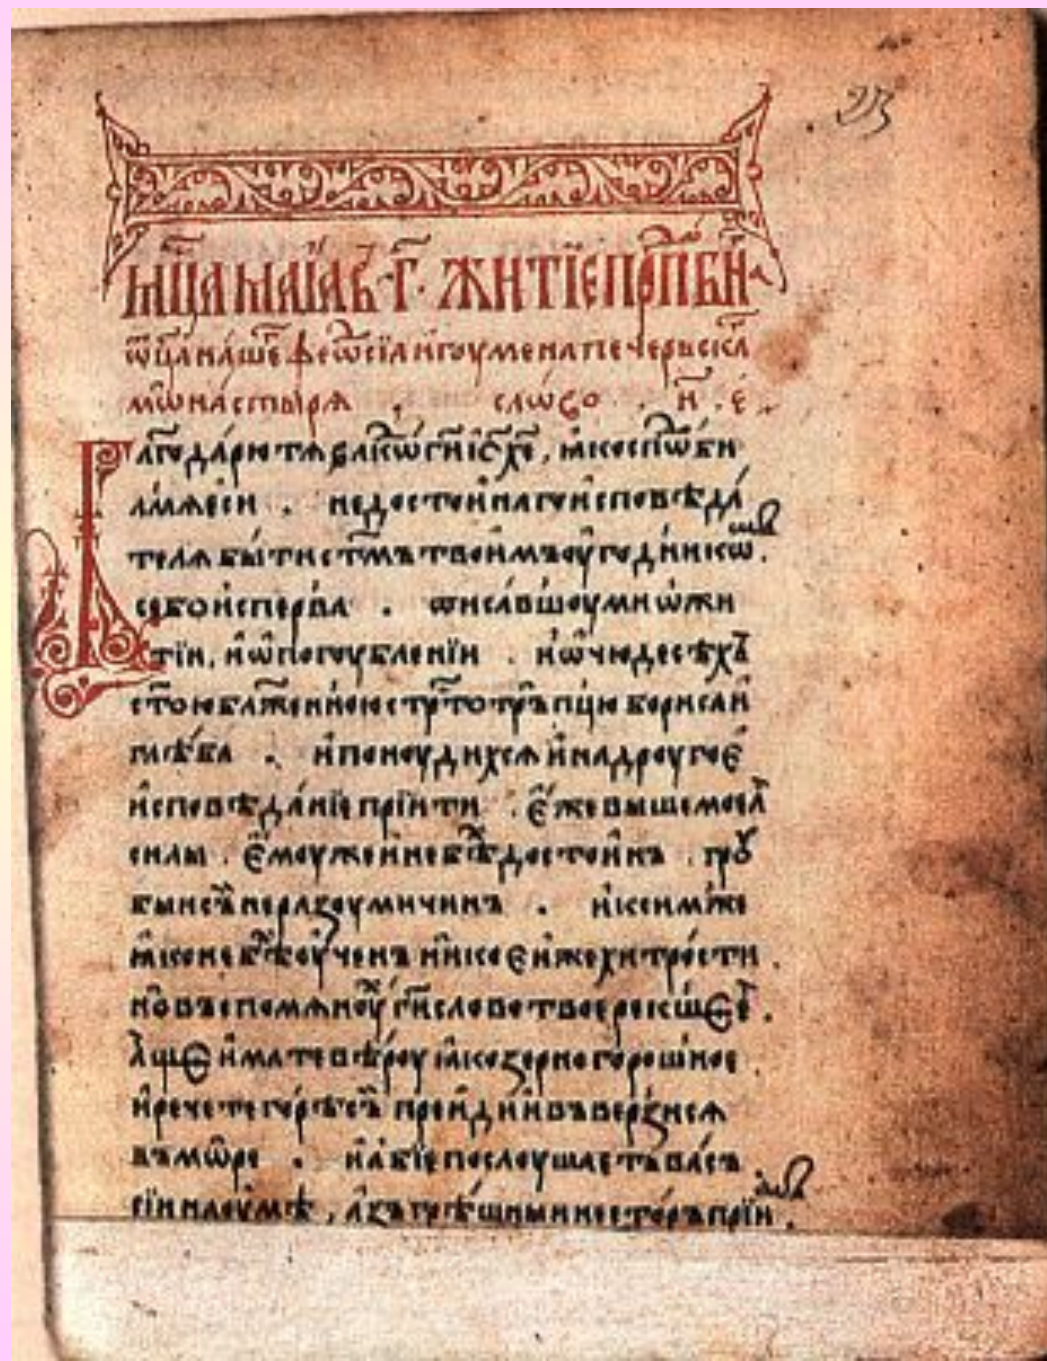 мц҃а маїа в҃ г҃. житїе прпⷣбнⷢ
ѿц҃а на́шеⷢ ѳеѡⷣсїа и҆гоумена печерьскаⷢ
мѡнастырѧ . сло́во . и҃ . е҃ .
Бл҃года́рю тѧ влⷣко ѡ҆ гⷭ҇и і҆с҃ хе҃, ꙗ҆ко сподⷪби
лъ мѧ еси . недосто́и́наго и҆сповѣда́
телѧ бы́ти ст҃ымъ твои́мъ оу҆го́дникѡⷨ.
се бо и҆сперва . списа́вшоу ми ѡ҆ жи
тїи, и҆ ѡ҆ погоублені́и . и҆ ѡ҆ чюдесѣхъ
ст҃ою бл҃женною стрⷭ҇тотрьпцю бориса и҆
глѣба . и҆ поноудихсѧ и҆ на дроугое҆
и҆сповѣда́нїе прїити . е҆же выше моеѧ
силы . е҆моуже и҆ не бѣⷯ досто́инъ . гроу
бы и҆ сы̀ неразоумичинъ . и҆ к симже
ꙗ҆ко не бѣⷯ оу҆ченъ никое҆иже хитрости
но въспомѧноуⷯ гⷭ҇и слово твое рекшее .
а҆ще и҆мате вѣ́роу ꙗ҆ко зерно горошное .
и҆ речете горѣ се́и преи҆ди и҆ въверзисѧ
въ мо́ре . и҆ а҆бїе послоушаетъ васъ .
сїи на оумѣ̀, а҆зъ грѣшныи несторъ прїиⷨ.